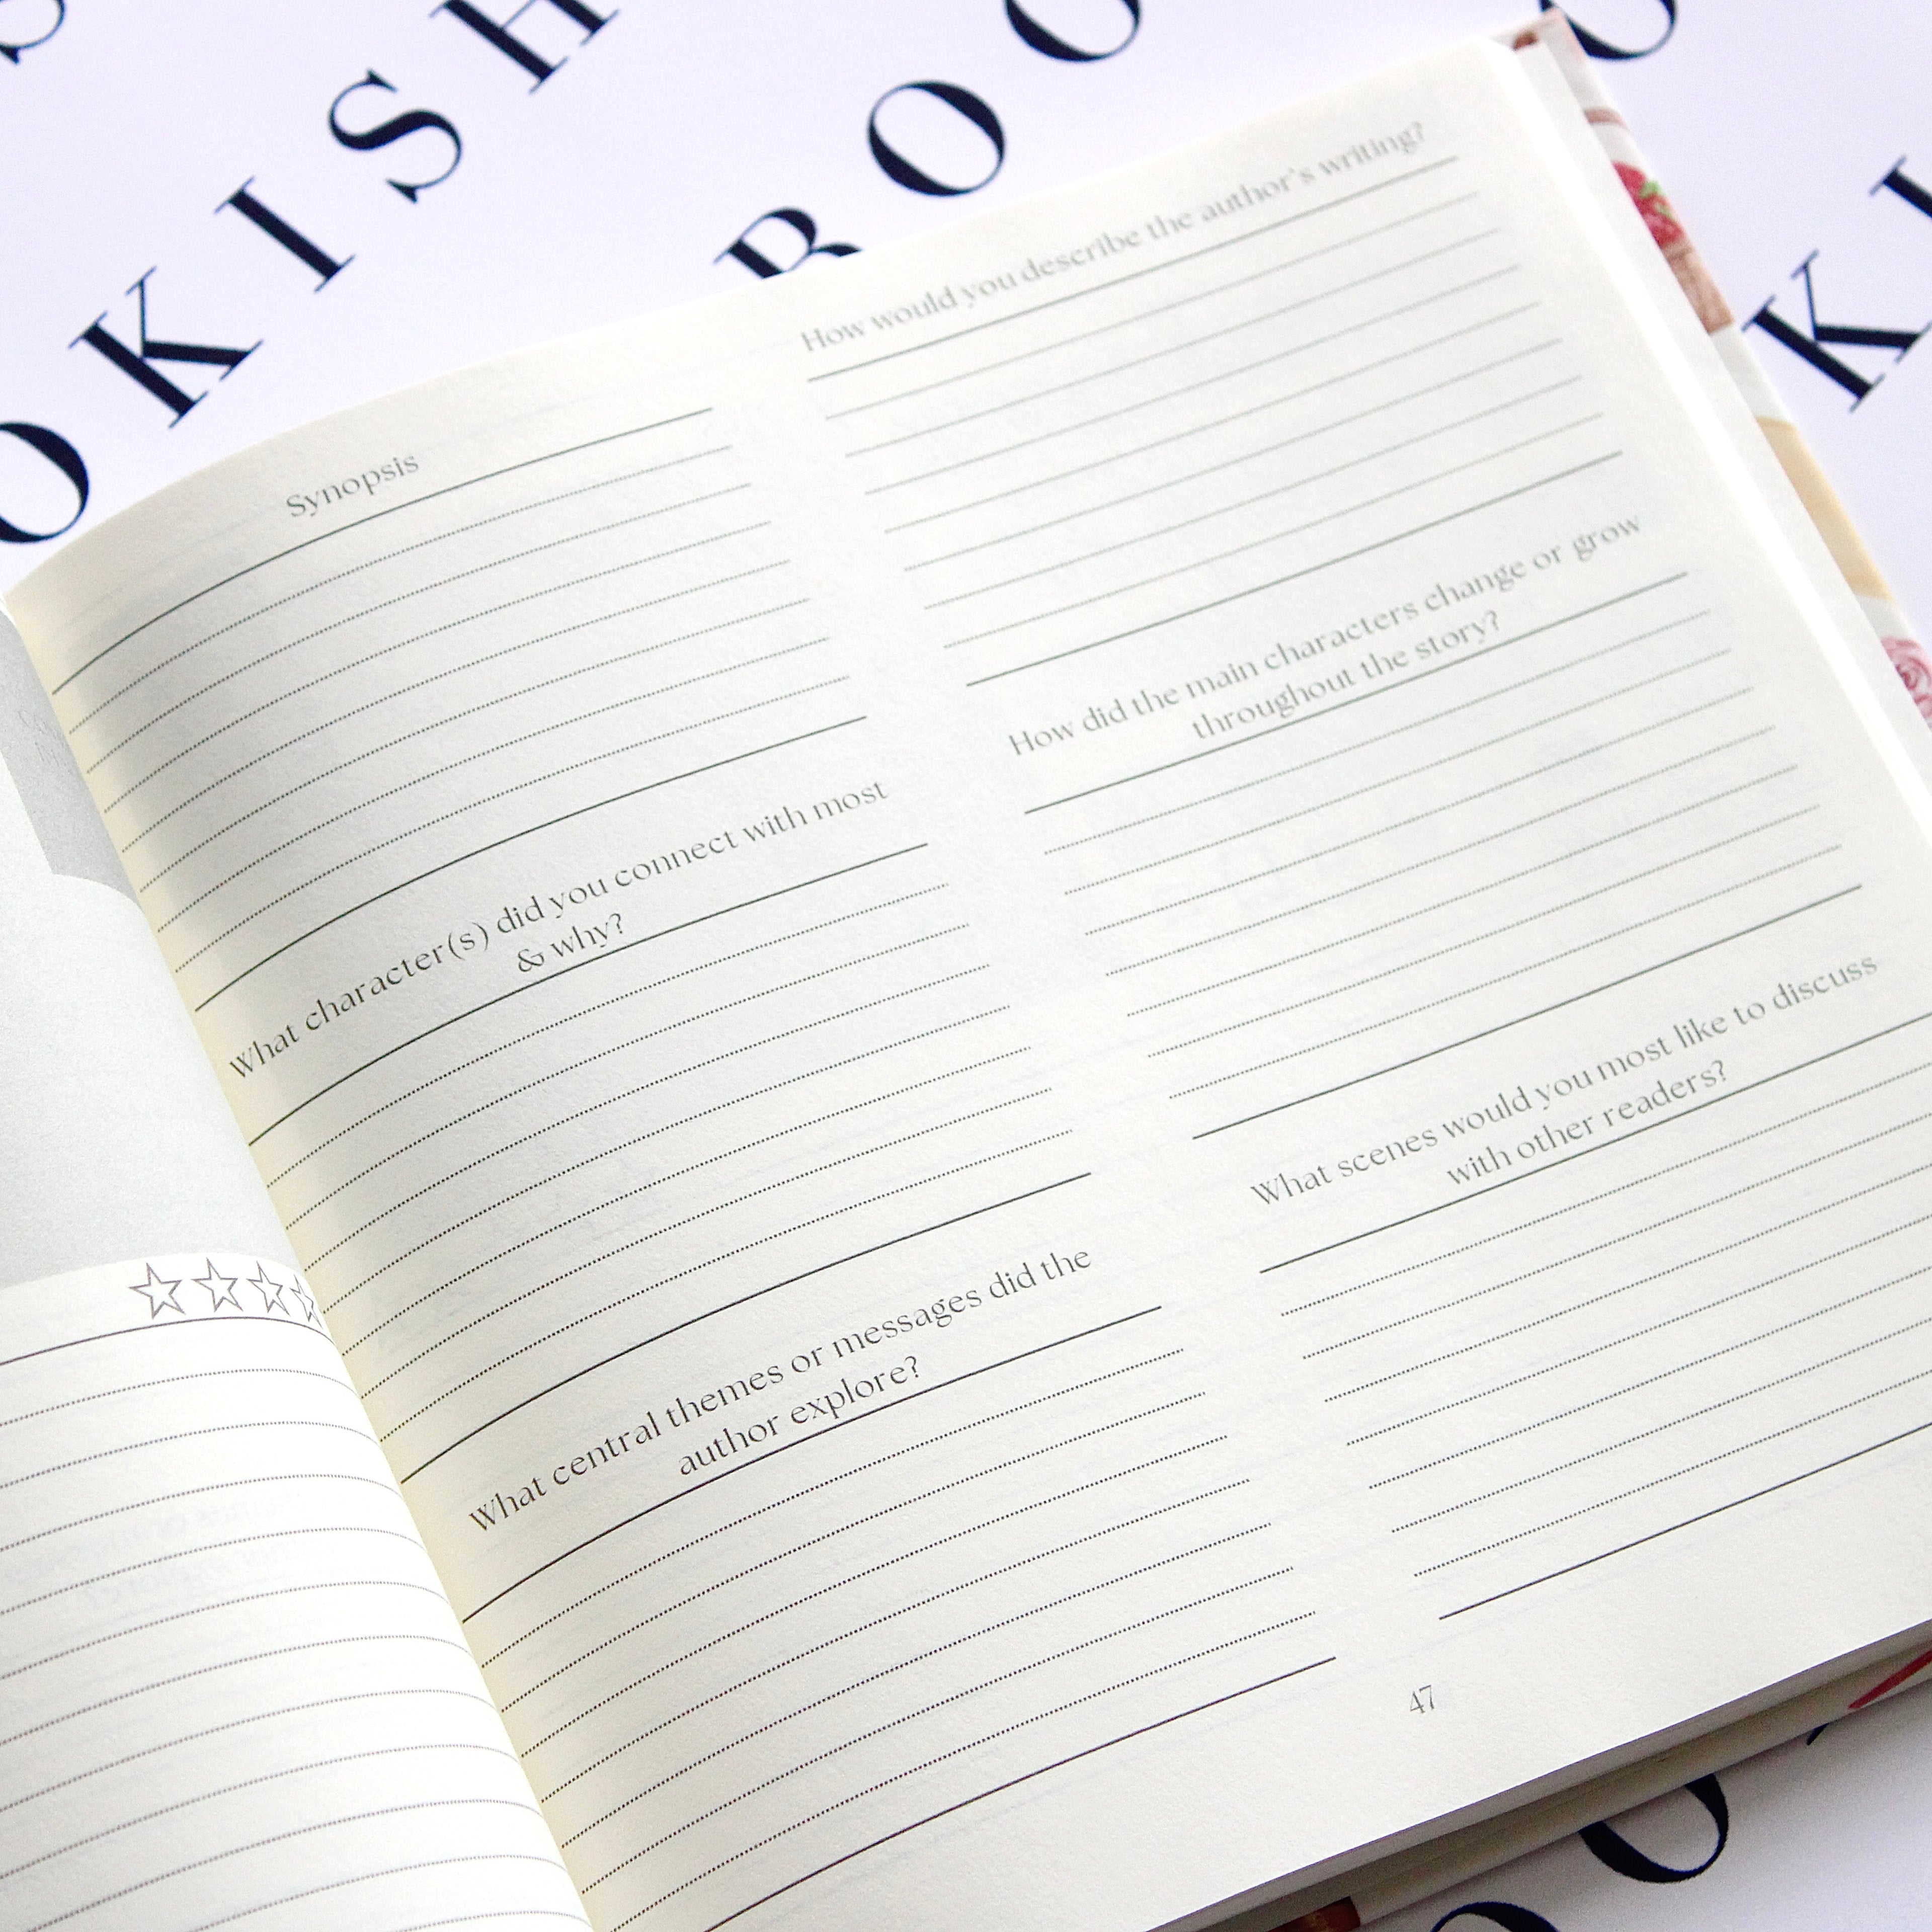 OKISH
BOO
Synopsis
What character(s) did you connect with most
& why?
What central themes or messages did the
author explore?
How would you describe the author's writing?
How did the main characters change or grow
throughout the story?
What scenes would you most like to discuss
with other readers?
47